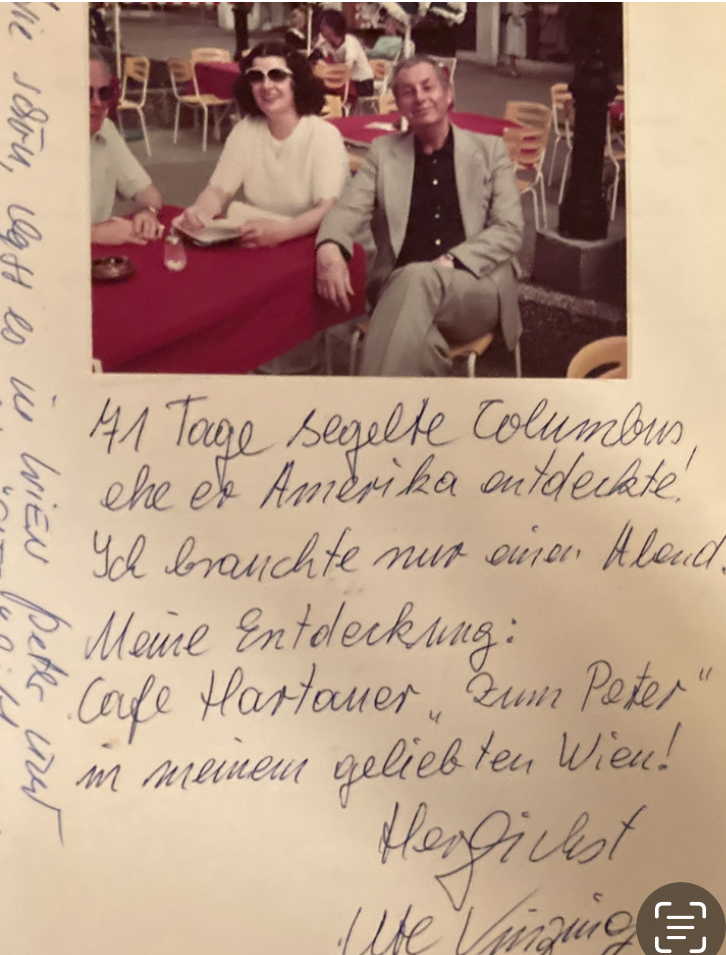 71 Tage segelte Columbus,
ehe er Amerika entdeckte!
Ich brauchte nur einen Abend.
Meine Entdeckung:
Cafe Hartauer „Zum Peter“
in meinem geliebten Wien!
Herzlichst
Ute Vinzing
Wie schön, es in WIEN Peter und